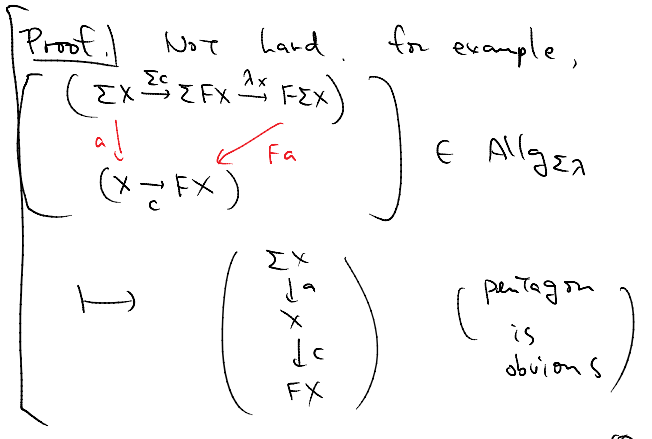 Proof.) Not hard. for example,
( ΣX —Σc→ ΣFX —λx→ FΣX )
a↓ ↙Fa
( X →c FX )
∈ AllgΣλ
↦
ΣX
↓a
X
↓c
FX
( pentagon
is
obvious )